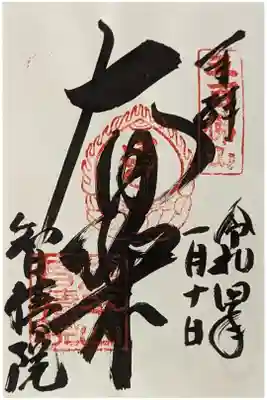 奉拝
令和四年
一月十日
大日如来
智積院